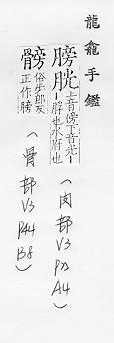 龍龕手鑑
膀胱
上音傍下音光
脬也水府也
(肉部 V3
A4)
髈
俗步郎反
正作膀
(骨部 V3 P44 B8)